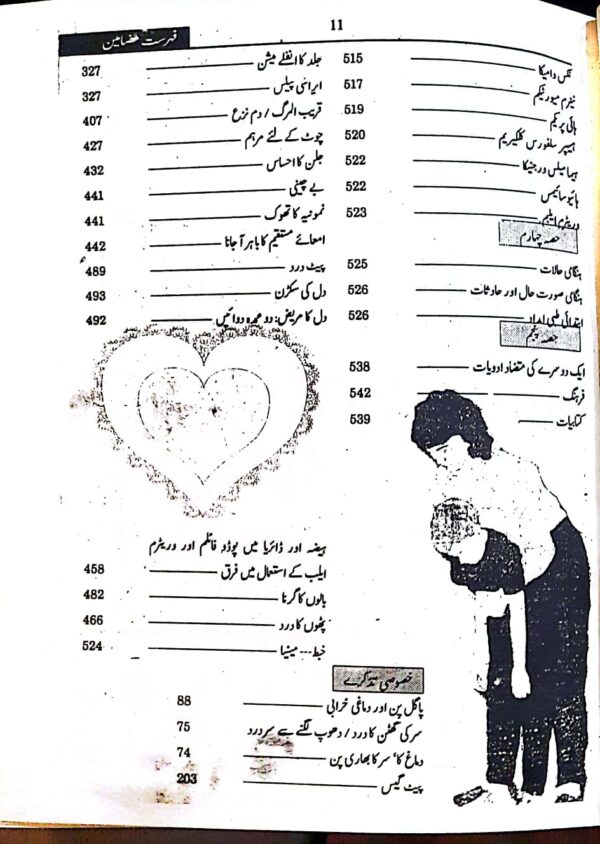 11
فہرست مضامین
نکس وامیکا 515
نیٹرم میورٹیکم 517
ہائی پریکم 519
ہیپر سلفورس کلکیریم 520
ہیمامیلس ورجنیکا 522
ہائیوسائیمس 522
وریٹرم ایلبم 523
حصہ چہارم
ہنگامی حالات 525
ہنگامی صورت حال اور حادثات 526
ابتدائی طبی امداد 526
حصہ پنجم
ایک دوسرے کی متضاد ادویات 538
فرہنگ 542
کتابیات 539
جلد کا انفلے میشن 327
ایرانی پیلس 327
قریب المرگ / دم نزع 407
چوٹ کے لئے مرہم 427
جلن کا احساس 432
بے چینی 441
نمونیہ کا تھوک 441
امعائے مستقیم کا باہر آ جانا 442
پیٹ درد 489
دل کی سکڑن 493
دل کا مریض: دو عمدہ دوائیں 492
ہیضہ اور ڈائریا میں پوڈو فائلم اور وریٹرم
ایلب کے استعمال میں فرق 458
بالوں کا گرنا 482
پٹھوں کا درد 466
خبط --- مینیا 524
خصوصی تذکرے
پاگل پن اور دماغی خرابی 88
سر کی گھٹن کا درد / دھوپ لگنے سے سردرد 75
دماغ کا، سر کا بھاری پن 74
پیٹ گیس 203